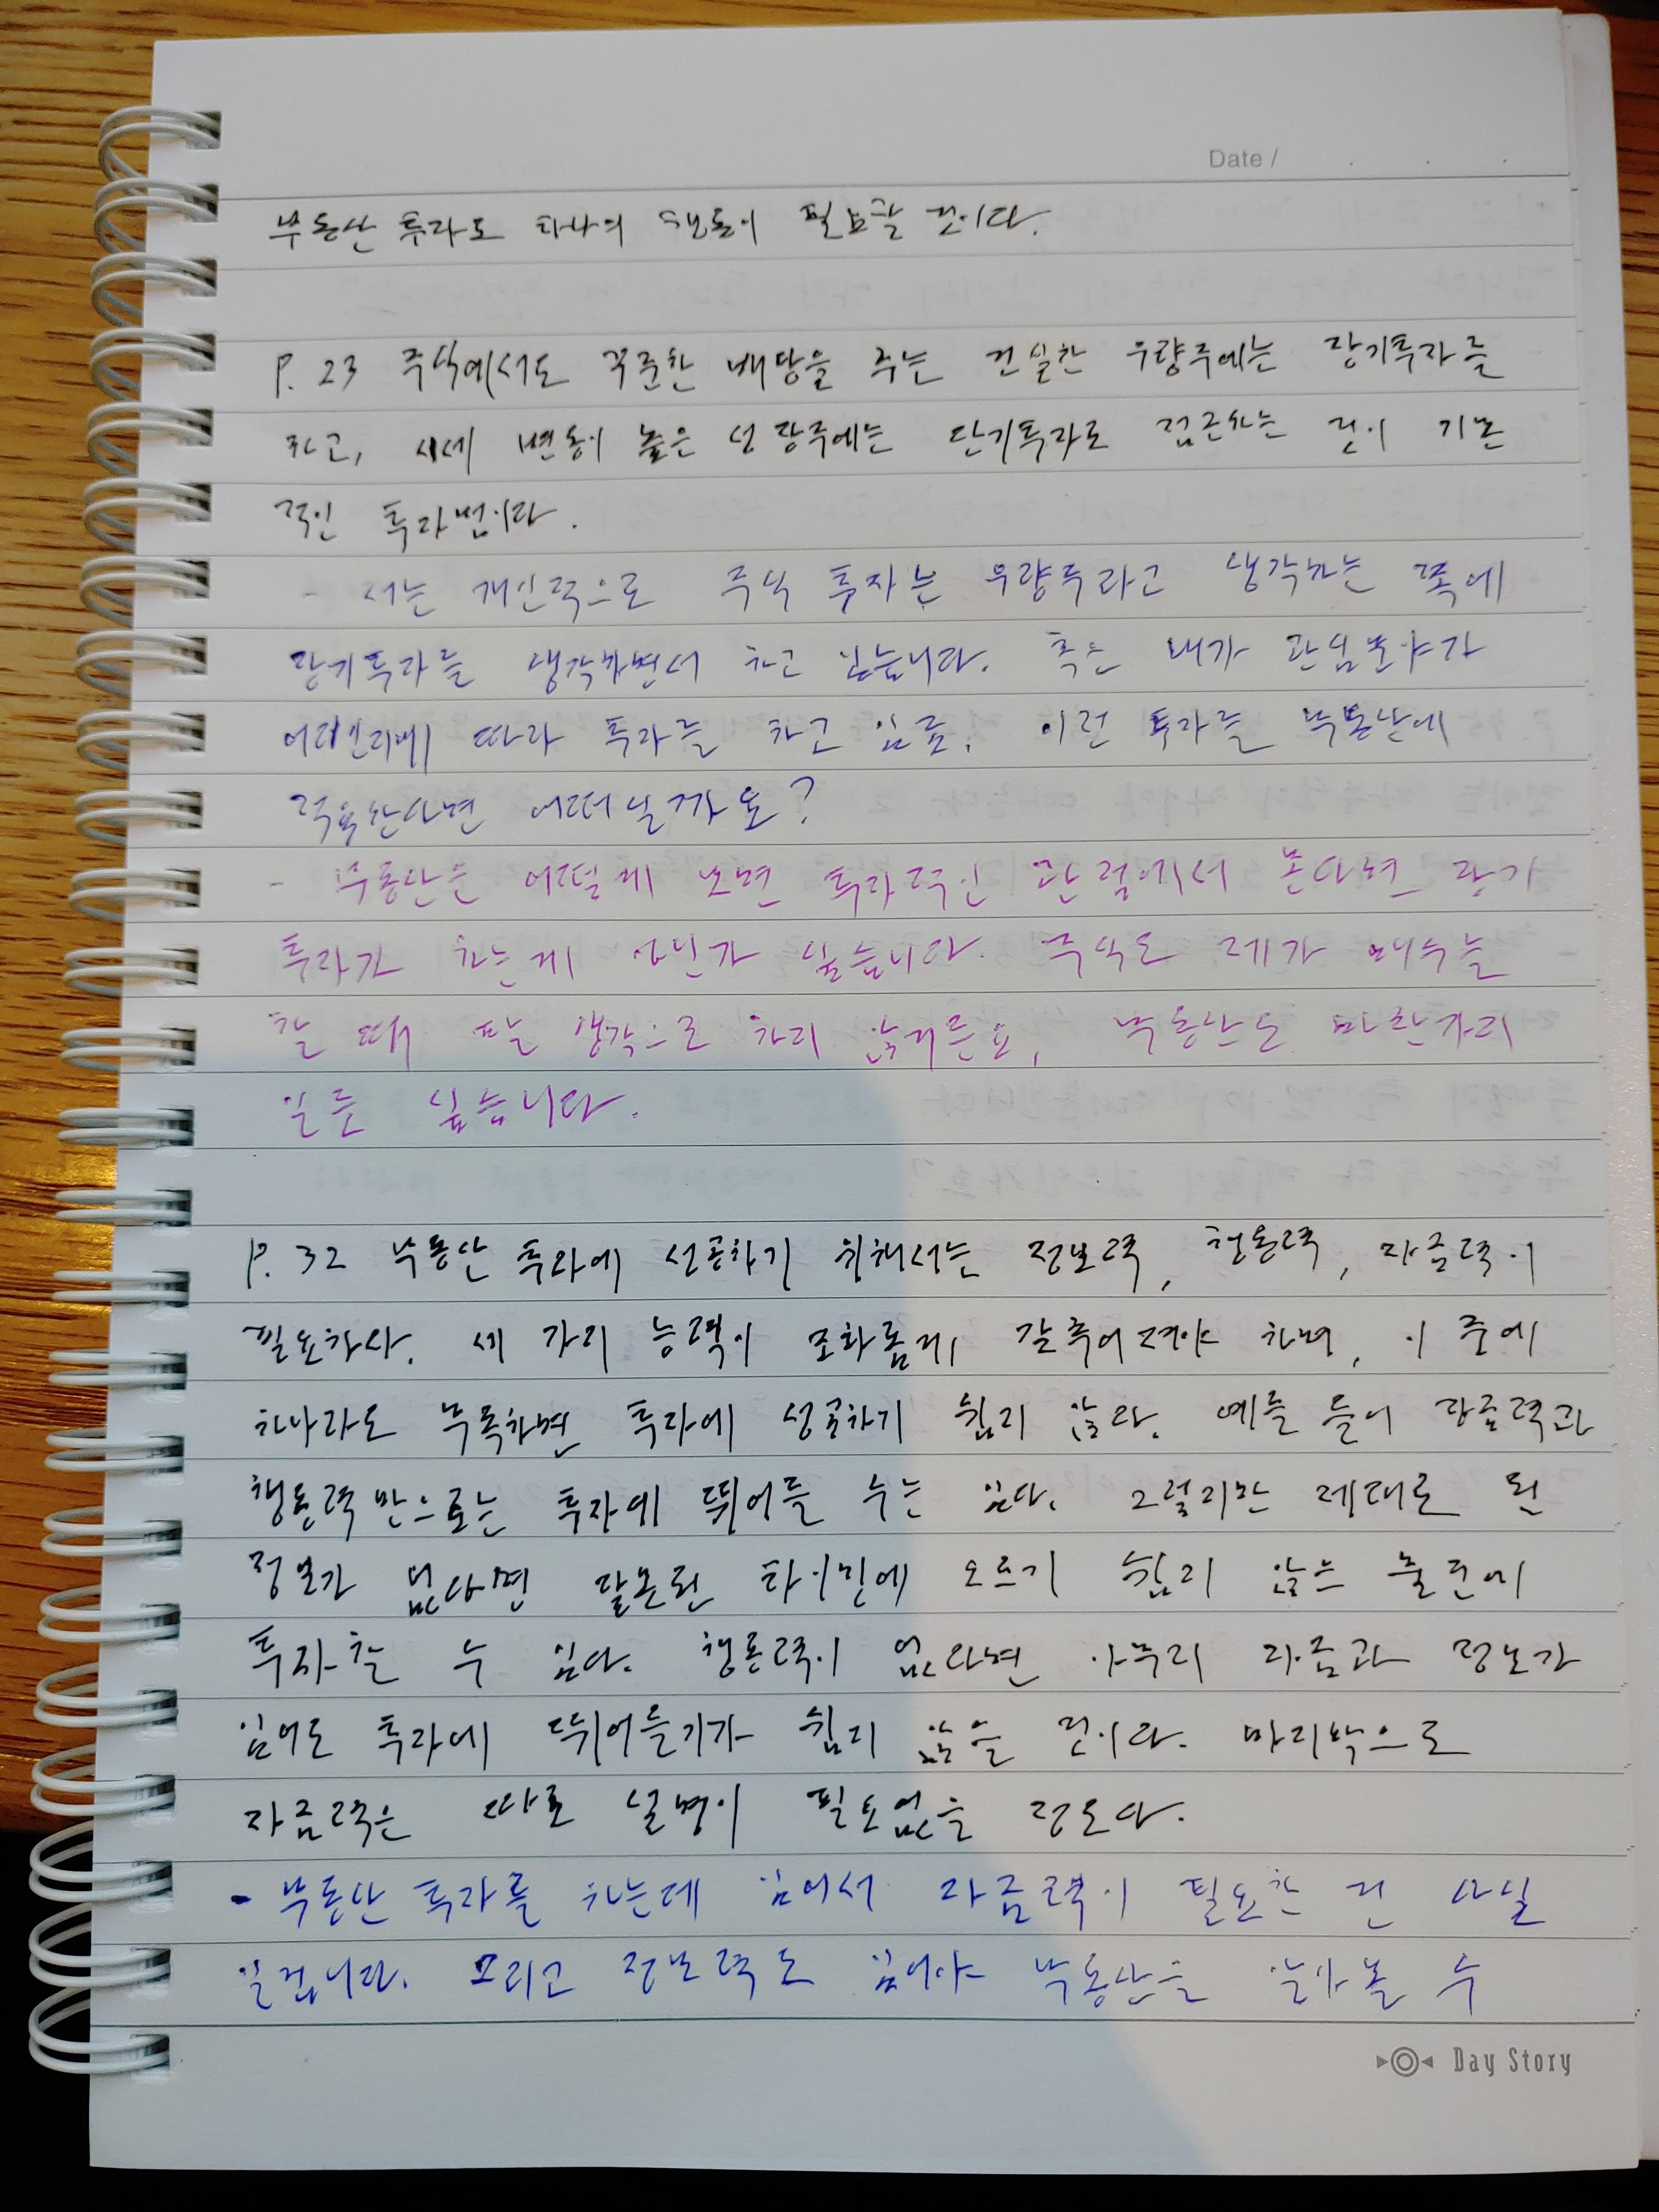 Date / . . .
부동산 투자도 하나의 행동이 필요할 것이다.
P. 23 주식에서도 꾸준한 배당을 주는 건실한 우량주에는 장기투자를
하고, 시세 변동이 높은 성장주에는 단기투자로 접근하는 것이 기본
적인 투자법이다.
- 저는 개인적으로 주식 투자는 우량주라고 생각하는 쪽에
장기투자를 생각하면서 하고 있습니다. 혹은 내가 관심분야가
어디인지에 따라 투자를 하고 있음. 이런 투자를 부동산에
적용한다면 어떠실까요?
- 부동산은 어떻게 보면 투자적인 관점에서 본다면 장기
투자가 하는게 아닌가 싶습니다. 주식도 제가 매수를
할 때 팔 생각으로 하지 않거든요, 부동산도 마찬가지
일듯 싶습니다.
P. 32 부동산 투자에 성공하기 위해서는 정보력, 행동력, 자금력이
필요하다. 세 가지 능력이 조화롭게 갖추어져야 하며, 이 중에
하나라도 부족하면 투자에 성공하기 쉽지 않다. 예를 들어 자금력과
행동력만으로는 투자에 뛰어들 수는 있다. 그렇지만 제대로 된
정보가 없다면 잘못된 타이밍에 오르기 쉽지 않은 물건에
투자할 수 있다. 행동력이 없다면 아무리 자금과 정보가
있어도 투자에 뛰어들기가 쉽지 않을 것이다. 마지막으로
자금력은 따로 설명이 필요없을 정도다.
- 부동산 투자를 하는데 있어서 자금력이 필요한 건 사실
일겁니다. 그리고 정보력도 있어야 부동산을 알아볼 수
Day Story